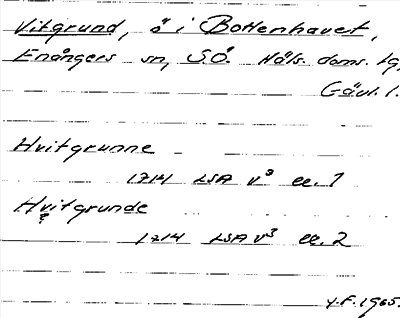 Vitgrund, ö i Bottenhavet,
Enångers sn, SÖ. Häls. doms. tg,
Gävl. l.
Hvitgrunne
1714 LSA V³ ee. 1
Hvitgrunde
1714 LSA V³ ee. 2
Y.F. 1965.